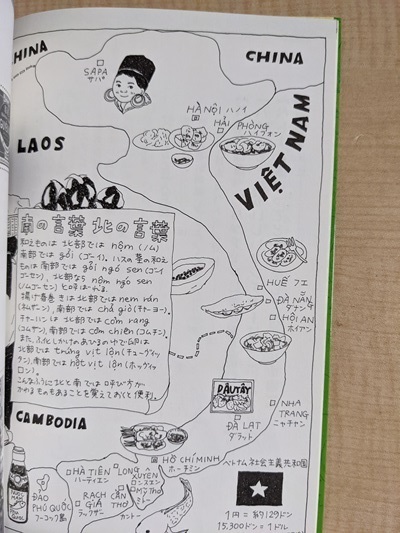 CHINA
CHINA
SAPA
サパ
HÀ NỘI ハノイ
HẢI PHÒNG
ハイフォン
LAOS
VIỆT NAM
南の言葉 北の言葉
和えものは 北部では nộm (ノム)
南部では gỏi (ゴーイ)。ハスの茎の和え
ものは南部では gỏi ngó sen (ゴーイ
ゴーセン)、北部なら nộm ngó sen
(ノムゴーセン) と呼ばれる。
揚げ春巻きは北部では nem rán
(ネムザーン)、南部では chả giò (チャーヨー)。
チャーハンは 北部では cơm rang
(コムザン)、南部では cơm chiên (コムチン)。
また、ふ化しかけのあひるのゆで卵は
北部では trứng vịt lộn (チュングヴィッ
ロン)、南部では hột vịt lộn (ホッヴィッ
ロン)。
こんなふうに北と南では呼び方が
かわるものもあることを覚えておくと便利。
HUẾ フエ
ĐÀ NẴNG
ダナン
HỘI AN
ホイアン
DÂU TÂY
ĐÀ LẠT
ダラット
NHA TRANG
ニャチャン
CAMBODIA
HỒ CHÍ MINH
ホーチミン
ベトナム社会主義共和国
HÀ TIÊN
ハーティエン
LONG XUYÊN
MỸ THO
ミトー
RẠCH GIÁ
CẦN THƠ
カントー
ĐẢO PHÚ QUỐC
フーコック島
1円=約129ドン
15,300ドン=1ドル